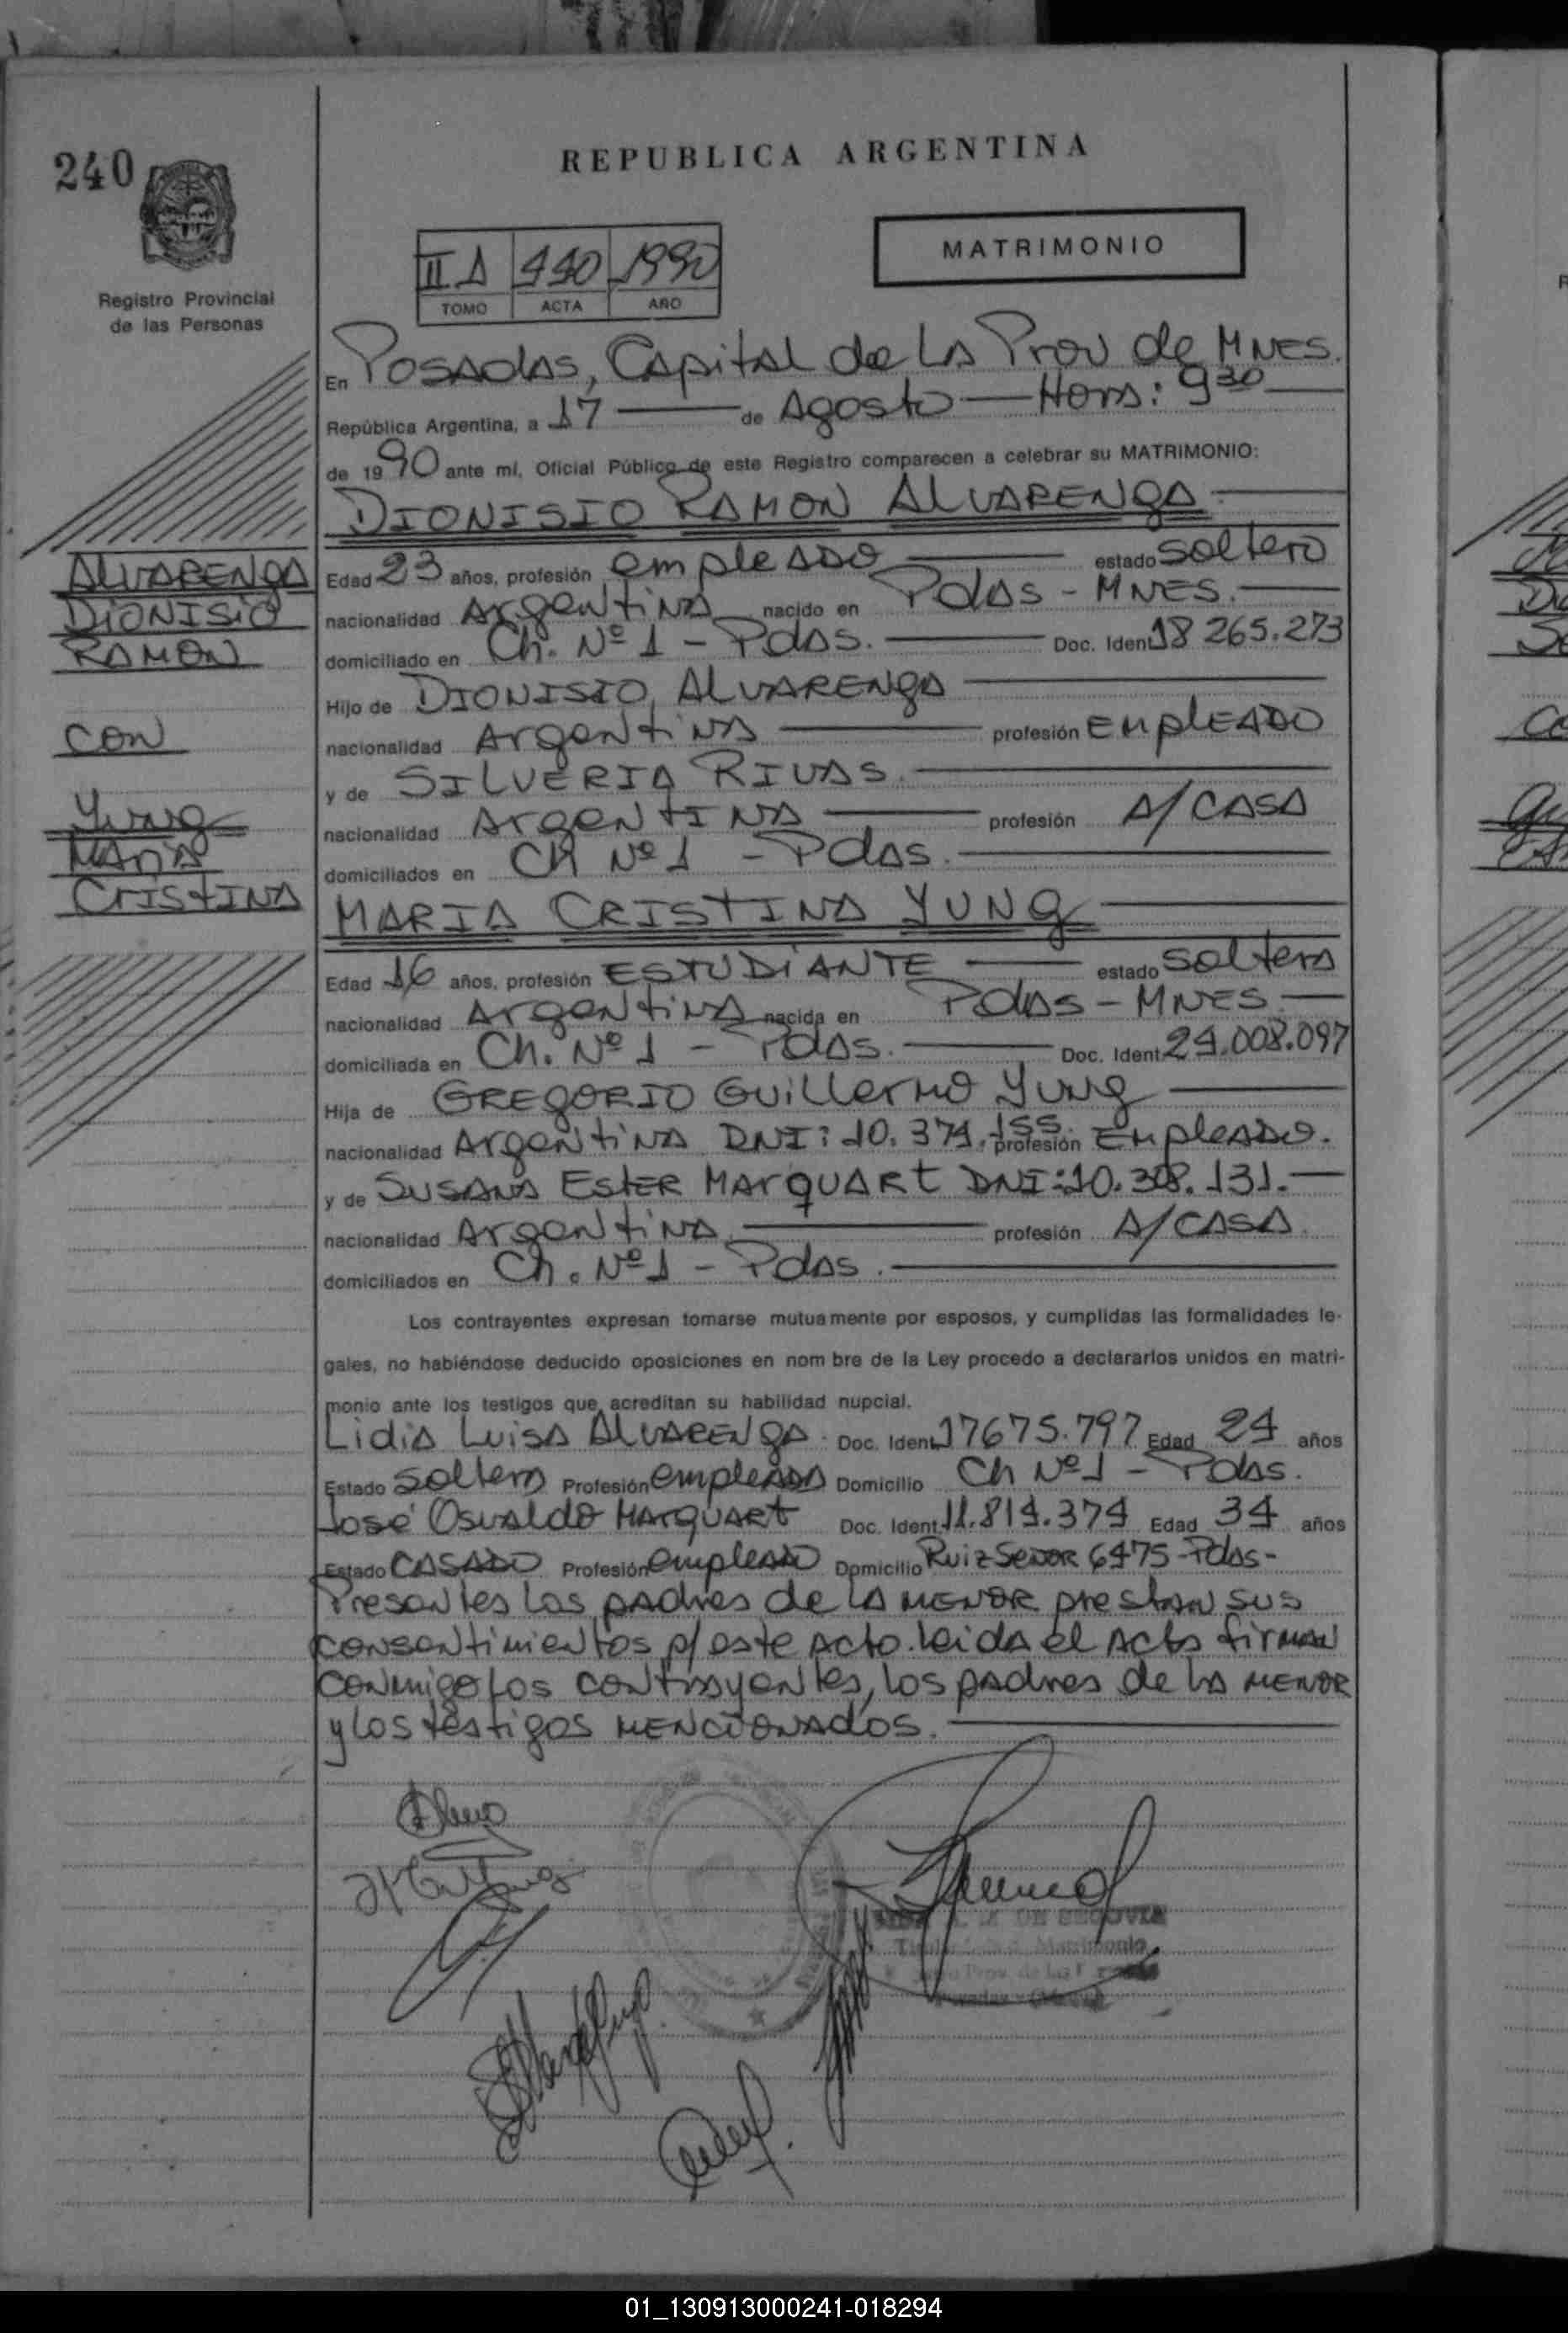 240
REPUBLICA ARGENTINA
MATRIMONIO
II A 440 1990
TOMO ACTA AÑO
Registro Provincial
de las Personas
En Posadas, Capital de la Prov de Mnes.
República Argentina, a 17 de Agosto Hora: 9 30
de 19 90 ante mí, Oficial Público de este Registro comparecen a celebrar su MATRIMONIO:
DIONISIO RAMON ALVARENGA
ALVARENGA
DIONISIO
RAMON
con
Yung
Maria
Cristina
Edad 23 años, profesión empleado estado soltero
nacionalidad Argentina nacido en Pdas - Mnes.
domiciliado en Ch. Nº 1 - Pdas. Doc. Ident. 18 265.273
Hijo de DIONISIO ALVARENGA
nacionalidad Argentina profesión Empleado
y de SILVERIA RIVAS.
nacionalidad Argentina profesión A/CASA
domiciliados en Ch Nº 1 - Pdas.
MARIA CRISTINA YUNG
Edad 16 años, profesión ESTUDIANTE estado soltera
nacionalidad Argentina nacida en Pdas - Mnes.
domiciliada en Ch. Nº 1 - Pdas. Doc. Ident. 24.008.097
Hija de GREGORIO Guillermo Yung
nacionalidad Argentina DNI: 10.374.155. profesión Empleado.
y de Susana Ester Marquart DNI: 10.308.131.
nacionalidad Argentina profesión A/CASA.
domiciliados en Ch. Nº 1 - Pdas.
Los contrayentes expresan tomarse mutuamente por esposos, y cumplidas las formalidades le-
gales, no habiéndose deducido oposiciones en nom bre de la Ley procedo a declararlos unidos en matri-
monio ante los testigos que acreditan su habilidad nupcial.
Lidia Luisa Alvarenga. Doc. Ident. 17675.797 Edad 24 años
Estado soltera Profesión empleada Domicilio Ch Nº 1 - Pdas.
José Osvaldo Marquart Doc. Ident. 11.814.374 Edad 34 años
Estado CASADO Profesión empleado Domicilio Ruiz Señor 6475 - Pdas -
Presentes los padres de la menor prestan sus
consentimientos p/ este acto. Leida el Acta firman
conmigo los contrayentes, los padres de la menor
y los testigos mencionados.
DE SEGOVIA
Matrimonio
01_130913000241-018294